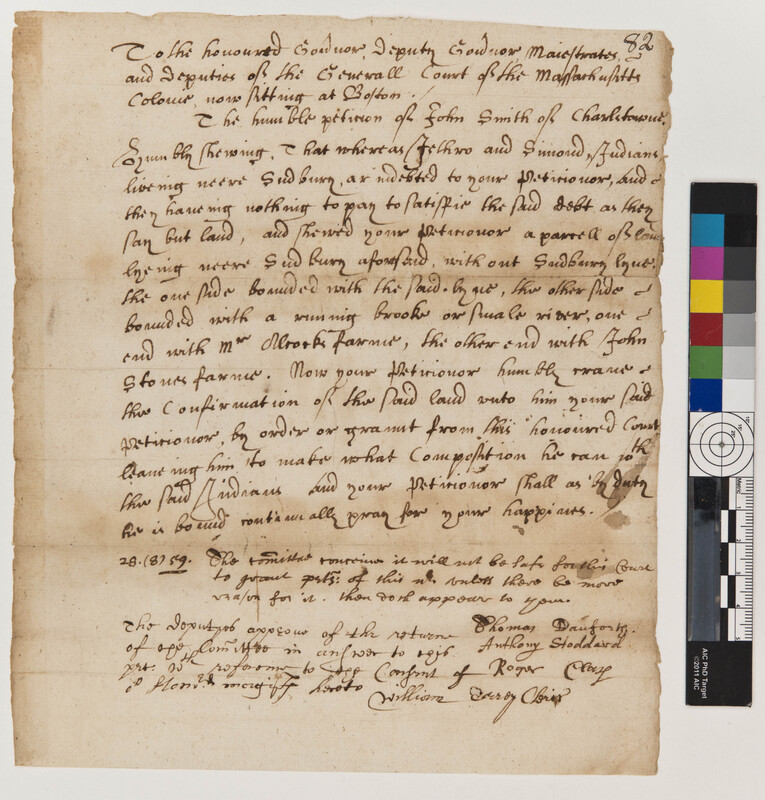 82
To the honoured Gouernor, Deputy Gouernor, Maiestrates,
and Deputies of the Generall Court of the Massachusitts
Colonie, now sitting at Boston.
The humble peticion of John Smith of Charlstowne.
Humbly shewing, That whereas Jethro and Simond, Indians
liueing neere Sudbury, ar indebted to your Peticionor, and
they haueing nothing to pay to satisfie the said debt as they
say but land, and shewed your Peticionor a parcell of
lyeing neere Sudbury aforsaid, without Sudbury lyne,
the one side bounded with the said lyne, the other side
bounded with a running brooke or smale riuer, one
end with Mr Alcocks farme, the other end with John
Stones farme. Now your Peticionor humbly craue
the Confirmation of the said land unto him your said
Peticionor, by order or graunt from this honoured Court
leaueing him to make what Composition he can with
the said Indians and your Peticionor shall as by duty
he is bound continually pray for your happines.
28.(8) 59. The comittee conceiue it will not be safe for this Court
to graunt of this unless there be more
reason for it. then doth appear to your.
The deputyes approue of the returne Thomas Danforth
of the Comittee in answer to this Anthony Stoddard
pet. with reference to the Consent of Roger Clap
hono'rd magists hereto
William Torrey Cleric
AIC PhD Target
©2011 AIC
Metric
1
2
3
4
5